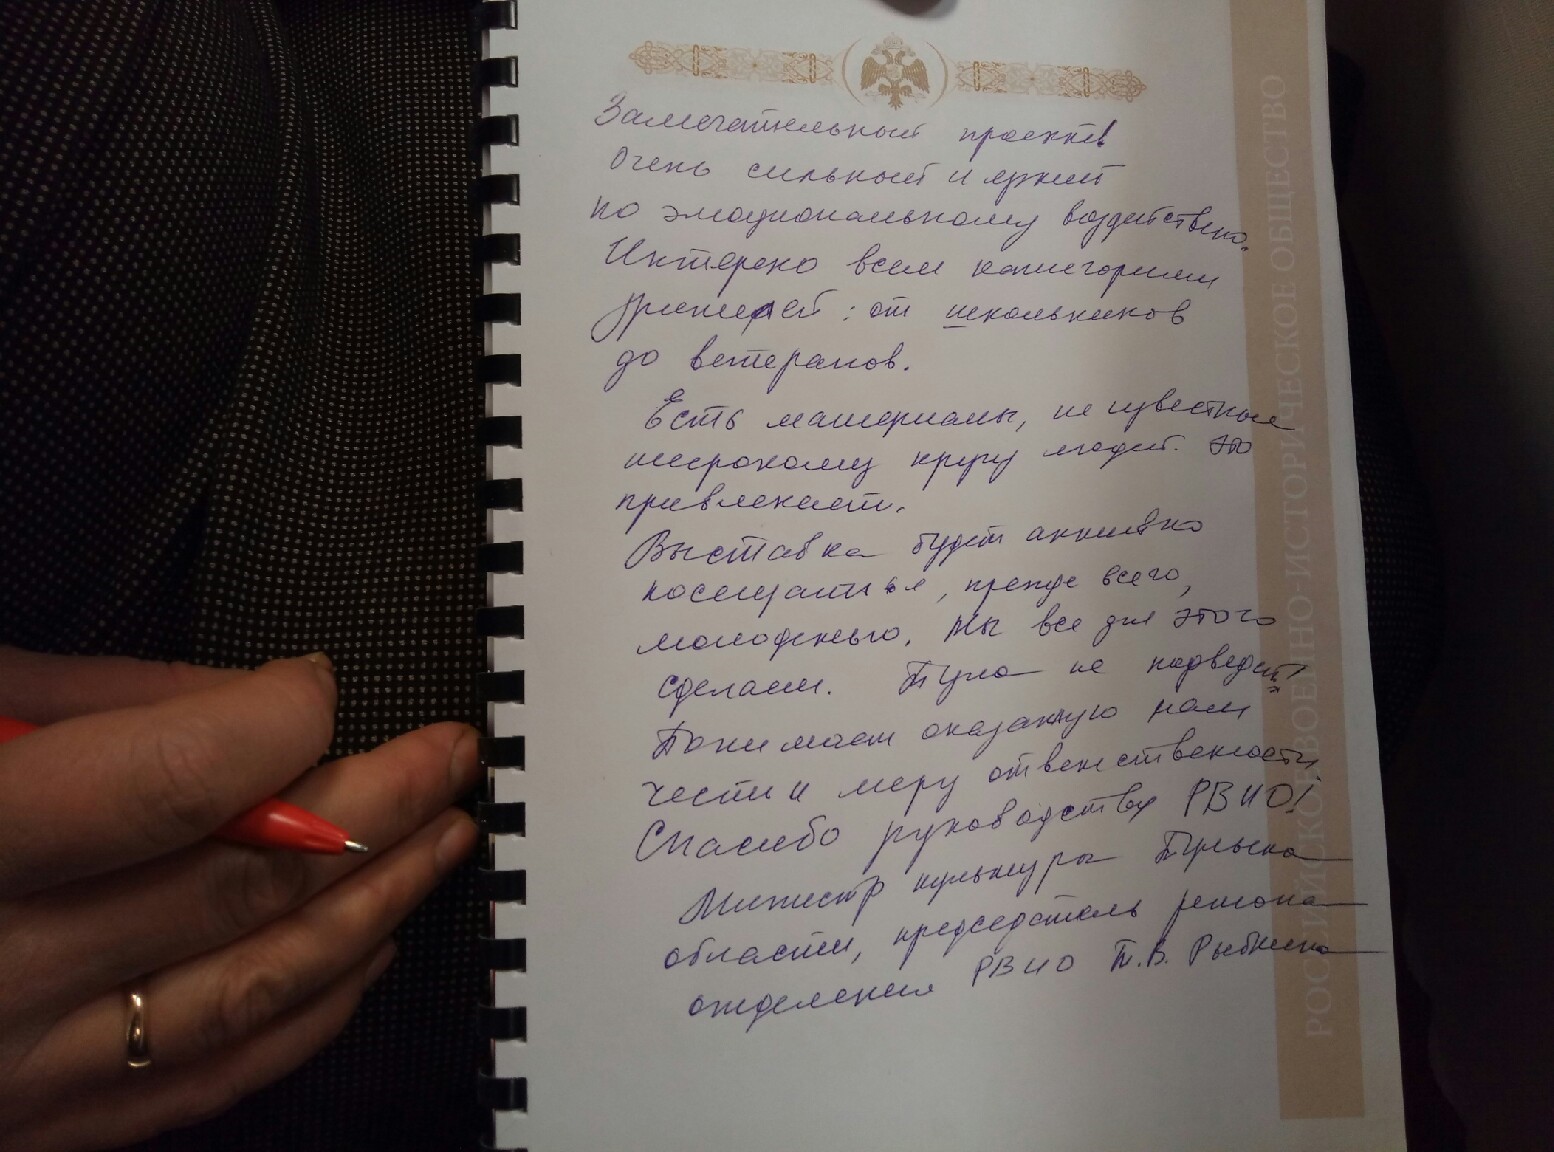 Замечательный проект!
Очень сильный и яркий
по эмоциональному воздействию.
Интересно всем категориям
зрителей: от школьников
до ветеранов.
Есть материалы, не известные
широкому кругу людей. Это
привлекает.
Выставка будет активно
посещаться, прежде всего,
молодежью. Мы все для этого
сделаем. Тула не подведет!
Понимаем оказанную нам
честь и меру ответственности
Спасибо руководству РВИО!
Министр культуры Тульской
области, председатель регион.
отделения РВИО Т.В. Рыбкина
РОССИЙСКОЕ ВОЕННО-ИСТОРИЧЕСКОЕ ОБЩЕСТВО